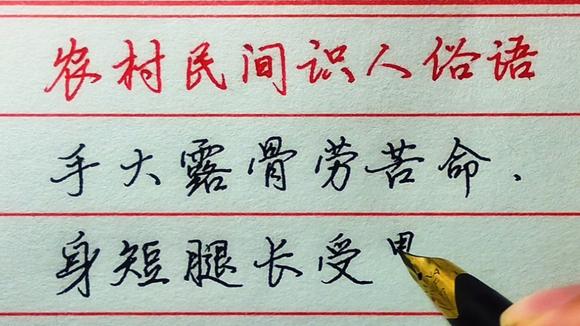 农村民间识人俗语
手大露骨劳苦命.
身短腿长受